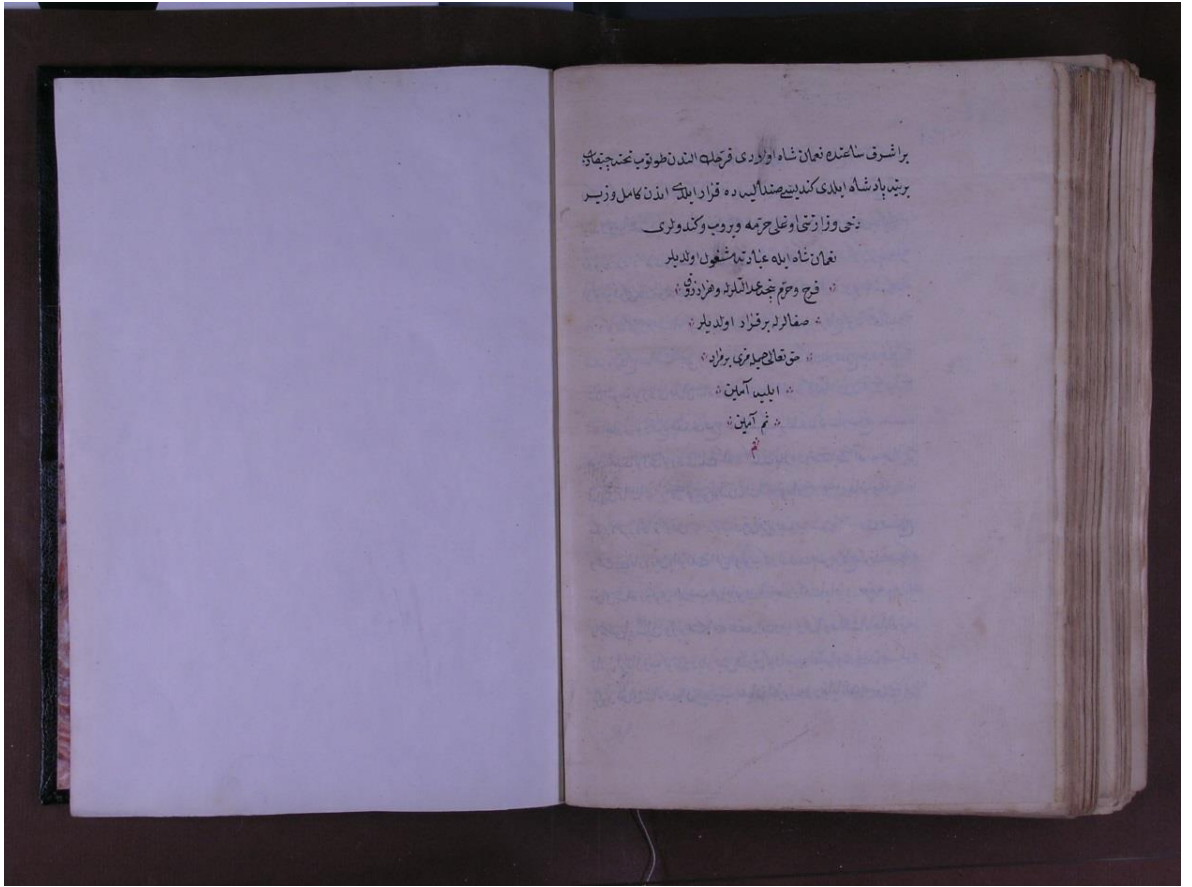 بر اشرف ساعتده نعمان شاه اولو دی فرحك الندن طوتوب تخته چیقاردی
یرینه پادشاه ایلدی کندیسی صندالیده قرار ایلدی اندن کامل وزیر
دخی وزارتنی اوغلی خرمه ویروب وکندولری
نعمان شاه ایله عبادته مشغول اولدیلر
فرح وخرم نیجه عدالتلرله وهزار ذوق
صفالرله برقرار اولدیلر
حق تعالی جمله مزی برقرار
ایلیه آمین
ثم آمین
تم